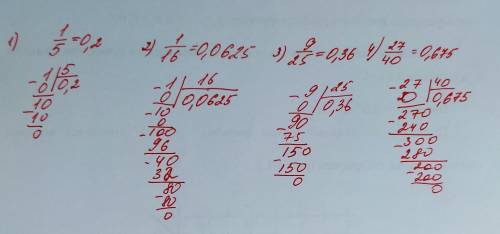 1) 1/5 = 0,2
-1 | 5
0 | 0,2
10
-10
0
2) 1/16 = 0,0625
-1 | 16
0 | 0,0625
-10
0
-100
96
-40
32
-80
80
0
3) 9/25 = 0,36
-9 | 25
0 | 0,36
90
-75
150
-150
0
4) 27/40 = 0,675
-27 | 40
0 | 0,675
270
-240
-300
280
-200
-200
0